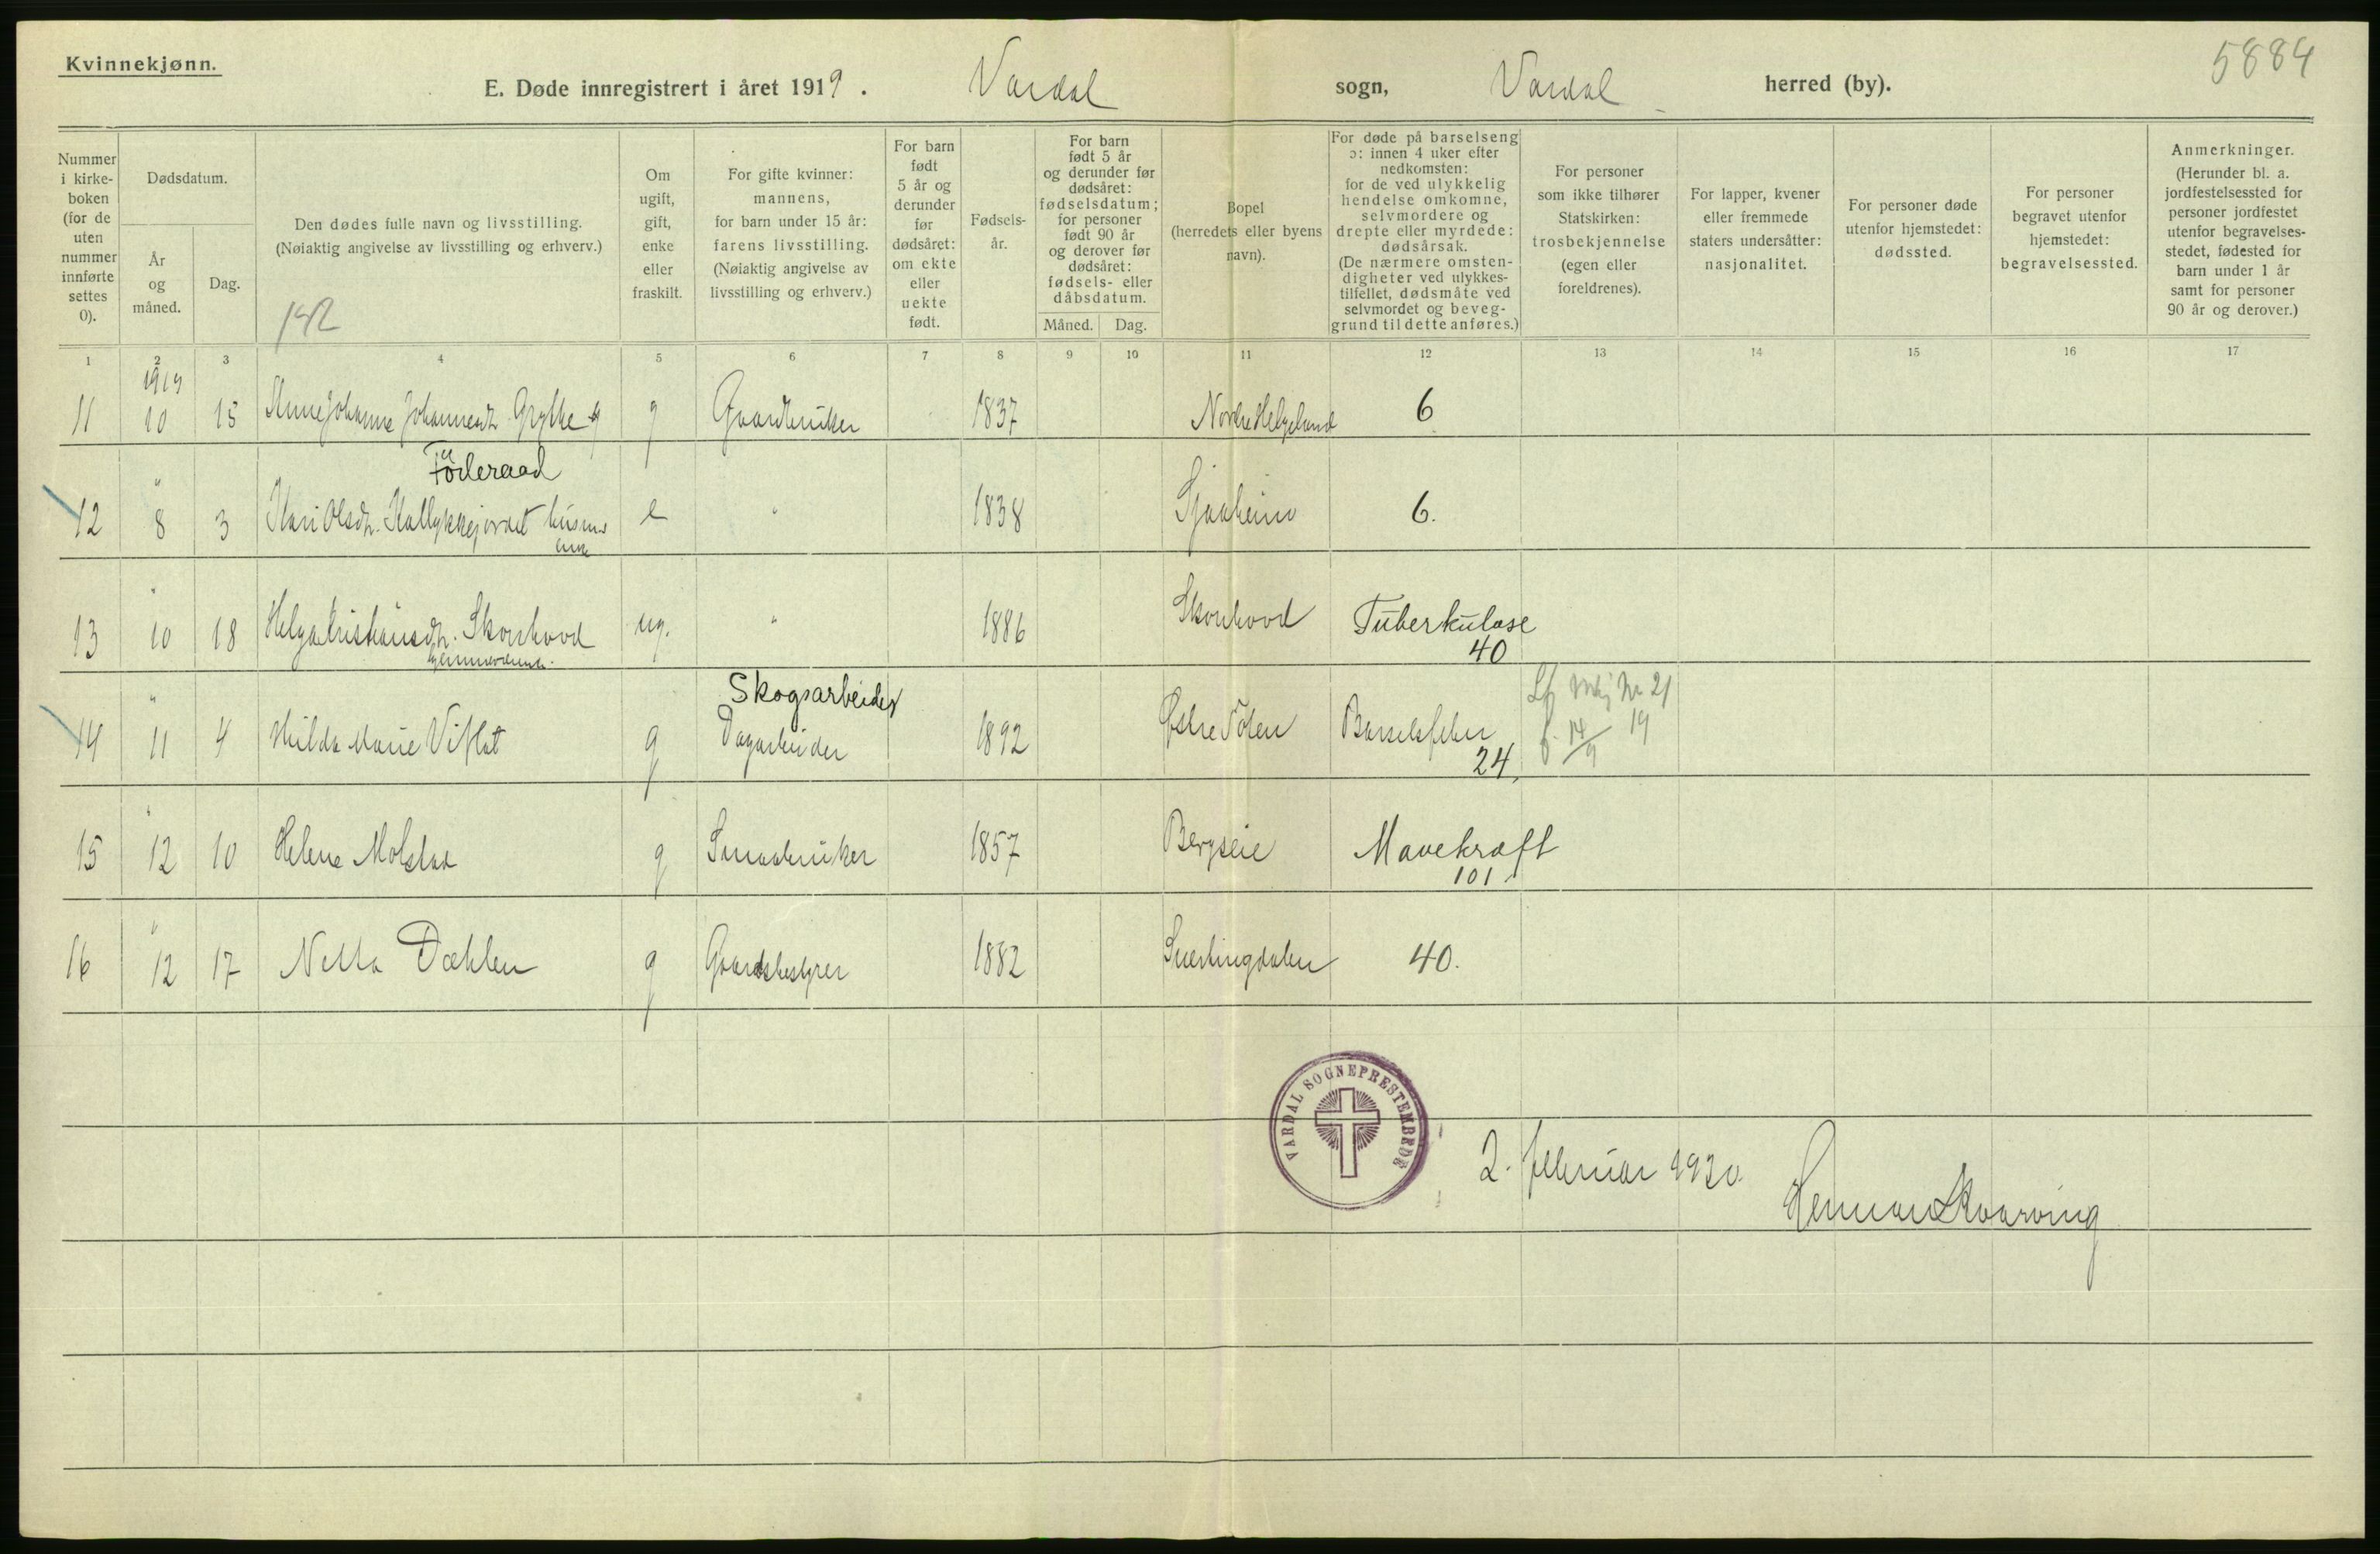 Kvinnekjønn.
5884
E. Døde innregistrert i året 1919. Vardal sogn, Vardal herred (by).
Nummer i kirke-boken (for de uten nummer innførte settes 0).
Dødsdatum.
År og måned.
Dag.
Den dødes fulle navn og livsstilling.
(Nøiaktig angivelse av livsstilling og erhverv.)
Om ugift, gift, enke eller fraskilt.
For gifte kvinner: mannens, for barn under 15 år: farens livsstilling. (Nøiaktig angivelse av livsstilling og erhverv.)
For barn født 5 år og derunder før dødsåret: om ekte eller uekte født.
Fødsels-år.
For barn født 5 år og derunder før dødsåret: fødselsdatum; for personer født 90 år og derover før dødsåret: fødsels- eller dåbsdatum.
Måned. Dag.
Bopel (herredets eller byens navn).
For døde på barselseng ɔ: innen 4 uker efter nedkomsten: for de ved ulykkelig hendelse omkomne, selvmordere og drepte eller myrdede: dødsårsak. (De nærmere omsten-digheter ved ulykkes-tilfellet, dødsmåte ved selvmordet og beveg-grund til dette anføres.)
For personer som ikke tilhører Statskirken: trosbekjennelse (egen eller foreldrenes).
For lapper, kvener eller fremmede staters undersåtter: nasjonalitet.
For personer døde utenfor hjemstedet: dødssted.
For personer begravet utenfor hjemstedet: begravelsessted.
Anmerkninger. (Herunder bl. a. jordfestelsessted for personer jordfestet utenfor begravelses-stedet, fødested for barn under 1 år samt for personer 90 år og derover.)
1 2 3 4 5 6 7 8 9 10 11 12 13 14 15 16 17
1919
11 10 15 Anne Johanne Johannesdtr. g Gaardbruker 1837 Nordre Helgeland 6
Föderaad
12 " 8 3 Kari Olsdtr. e " 1838 6.
13 " 10 18 Helga Kristiansdtr. Skonhovd ug. " 1886 Skonhovd Tuberkulose
40
Skogsarbeider
14 " 11 4 Hilda Marie Viflat g Dagarbeider 1892 Østre Toten Barselsfeber
24
Nr 21
14/9 19
15 " 12 10 Helene Molstad g Smaabruker 1857 Bergseie Mavekræft
101
16 " 12 17 Netta Dæhlen g Gaardsbestyrer 1882 Snertingdalen 40.
VARDAL SOGNEPRESTEMBEDE
2. februar 1920.
Herman Skaarving